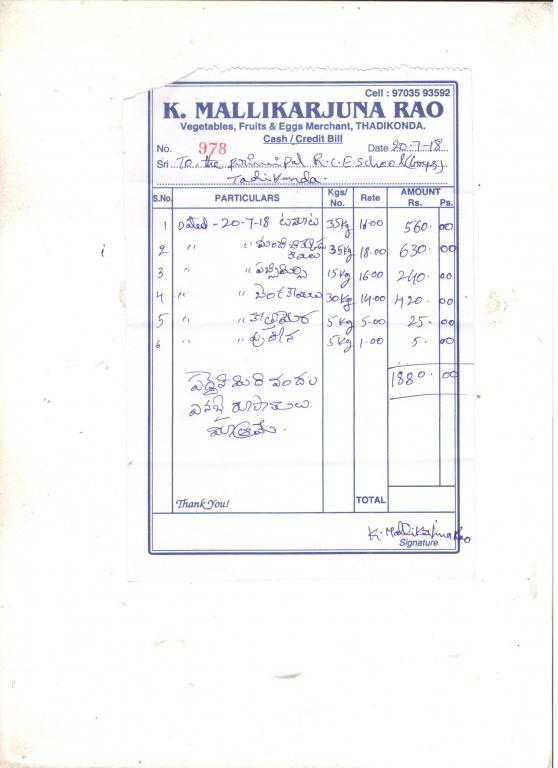 Cell : 97035 93592
K. MALLIKARJUNA RAO
Vegetables, Fruits & Eggs Merchant, THADIKONDA.
Cash / Credit Bill
No. 978 Date 20-7-18
Sri To, the principal R.C.E School (boys)
Tadikonda-
S.No. PARTICULARS Kgs/ No. Rate AMOUNT Rs. Ps.
1 Dated - 20-7-18 టమాటు 35kg 16.00 560. 00
2 " " 35kg 18.00 630. 00
3 " " పచ్చిమిర్చి 15kg 16.00 240. 00
4 " " బెండకాయలు 30kg 14.00 420. 00
5 " " 5kg 5.00 25. 00
6 " " పుదీన 5kg 1.00 5. 00
1880. 00
వందల
ఎనభై రూపాయలు
మాత్రమే.
Thank You! TOTAL
K. Mallikarjuna Rao
Signature